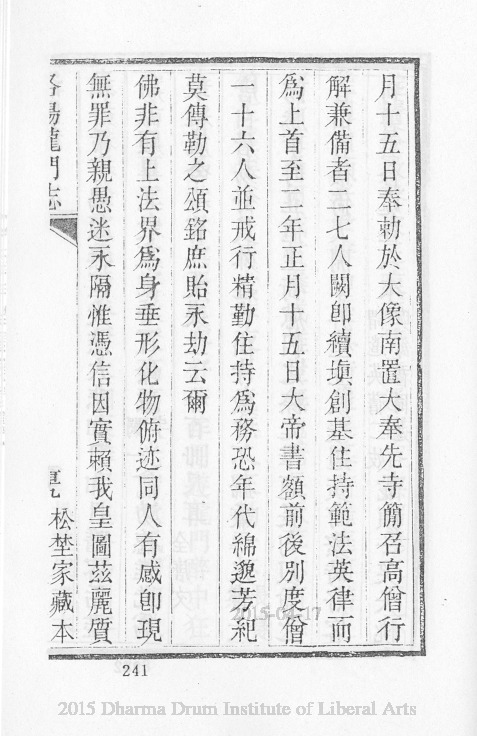 月十五日奉勅於大像南置大奉先寺簡召高僧行
解兼備者二七人闕即續塡創基住持範法英律而
爲上首至二年正月十五日大帝書額前後別度僧
一十六人並戒行精勤住持爲務恐年代綿邈芳紀
莫傳勒之頌銘庶貽永劫云爾
佛非有上法界爲身垂形化物俯迹同人有感即現
無罪乃親愚迷永隔惟憑信因實賴我皇圖茲麗質
洛陽龍門志
松埜家藏本
241
2015 Dharma Drum Institute of Liberal Arts